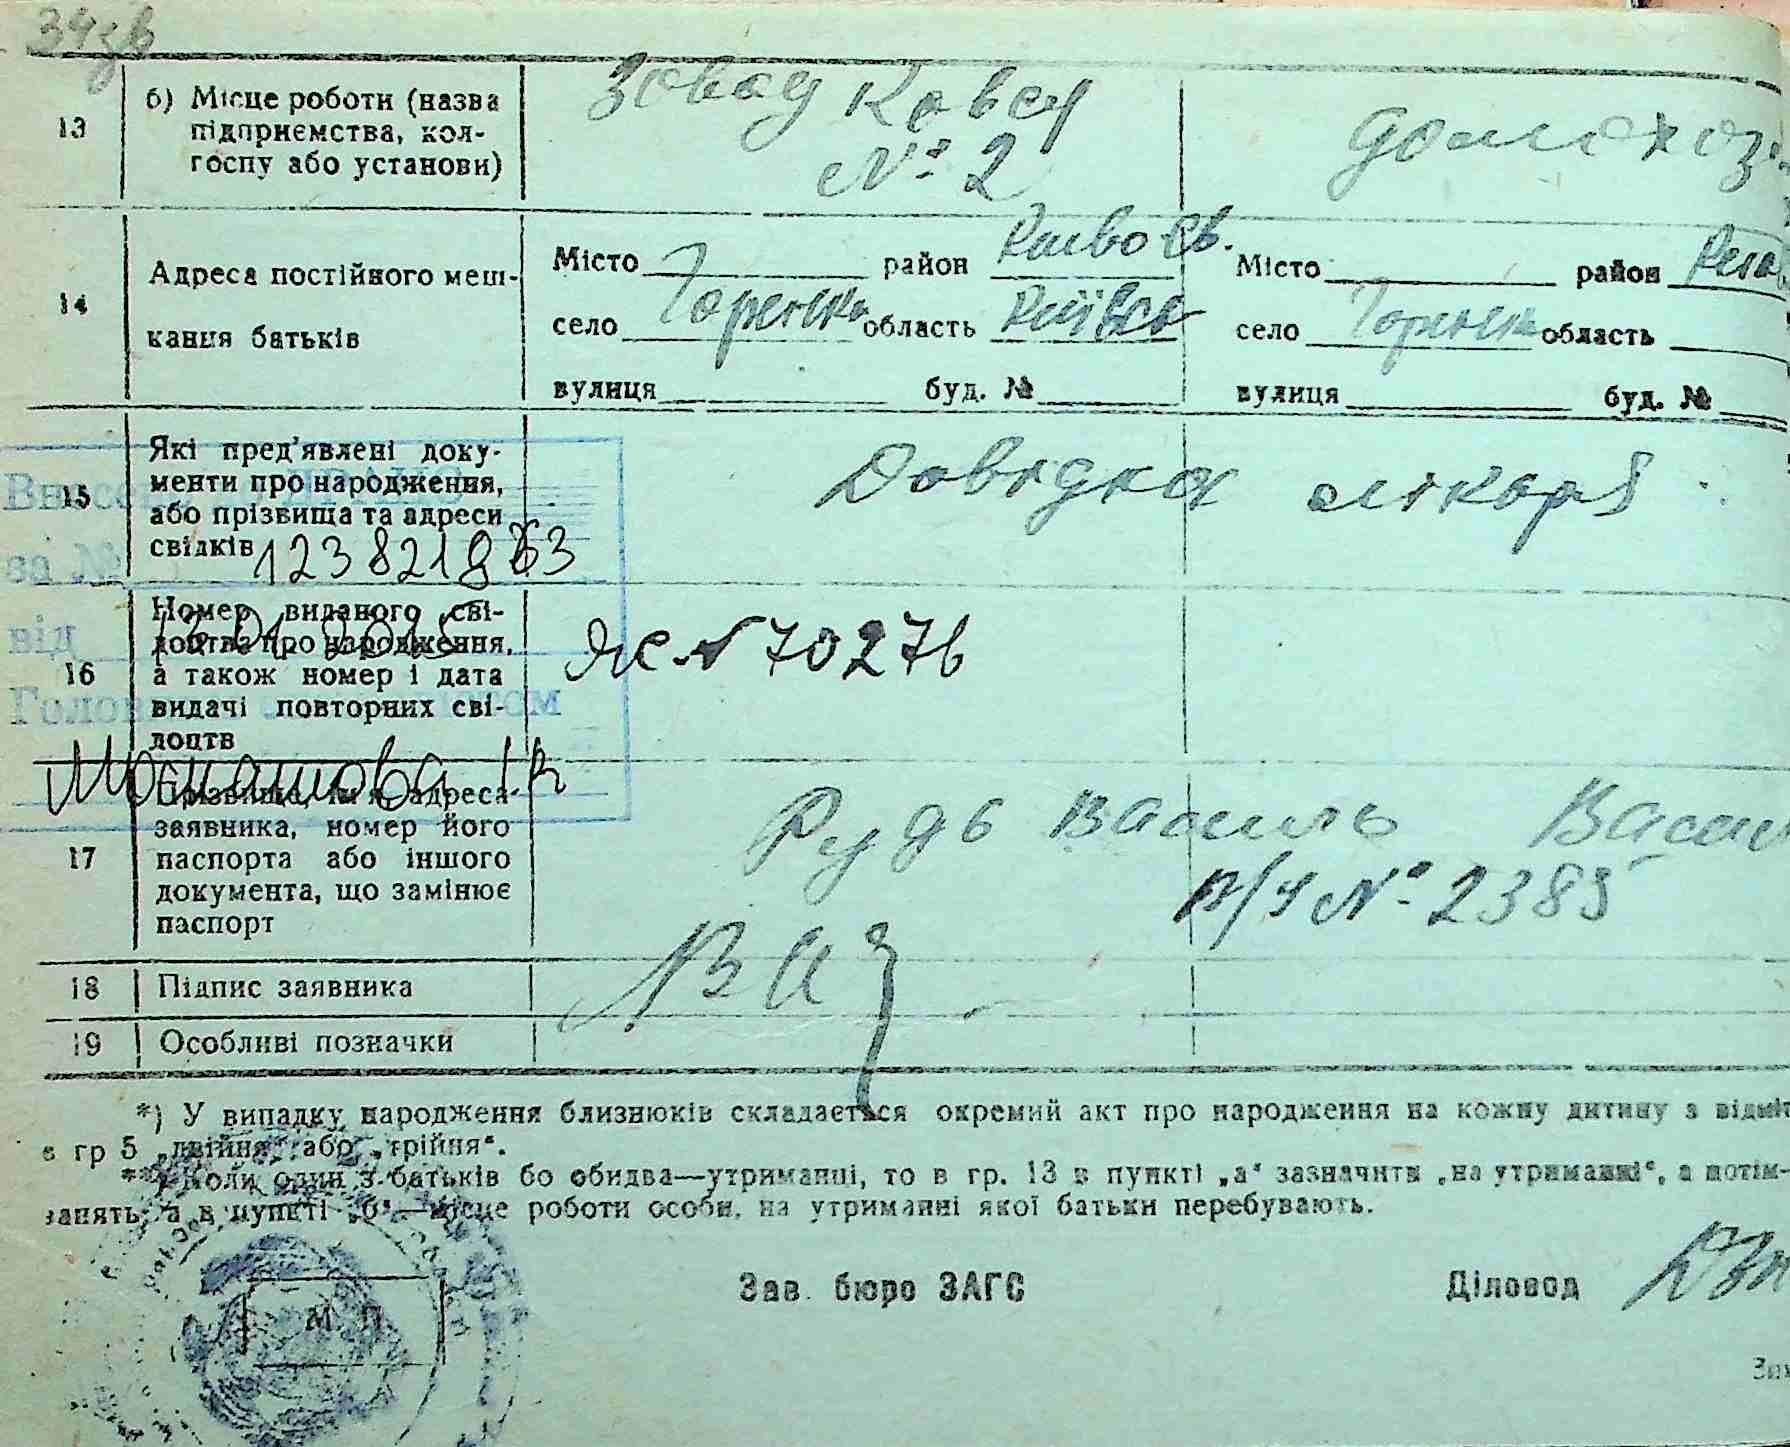 34зв
13
б) Місце роботи (назва
підприємства, кол-
госпу або установи)
Зовод Ковсу
№ 2
домохоз.
14
Адреса постійного меш-
кання батьків
Місто район Києво Св.
село Горенка область Київськ
вулиця буд. №
Місто район
село Горенка область
вулиця буд. №
15
Які пред'явлені доку-
менти про народження,
або прізвища та адреси
свідків
Довідка лікаря
за №
від
16
Номер виданого сві-
доцтва про народження,
а також номер і дата
видачі повторних сві-
доцтв
№ 70276
17
Прізвище, ім'я, адреса
заявника, номер його
паспорта або іншого
документа, що замінює
паспорт
Рудь Василь Васил
в/ч № 2385
18
Підпис заявника
19
Особливі позначки
*) У випадку народження близнюків складається окремий акт про народження на кожну дитину з відміт
в гр 5 „двійня“ або „трійня“.
**) Коли один з батьків бо обидва—утриманці, то в гр. 13 в пункті „а“ зазначити „на утриманні“, а потім-
занять, а в пункті „б“—місце роботи особи, на утриманні якої батьки перебувають.
Зав. бюро ЗАГС
Діловод
М. П.